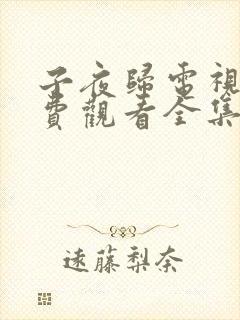 子夜歸電視
費觀看全集
遠藤梨奈